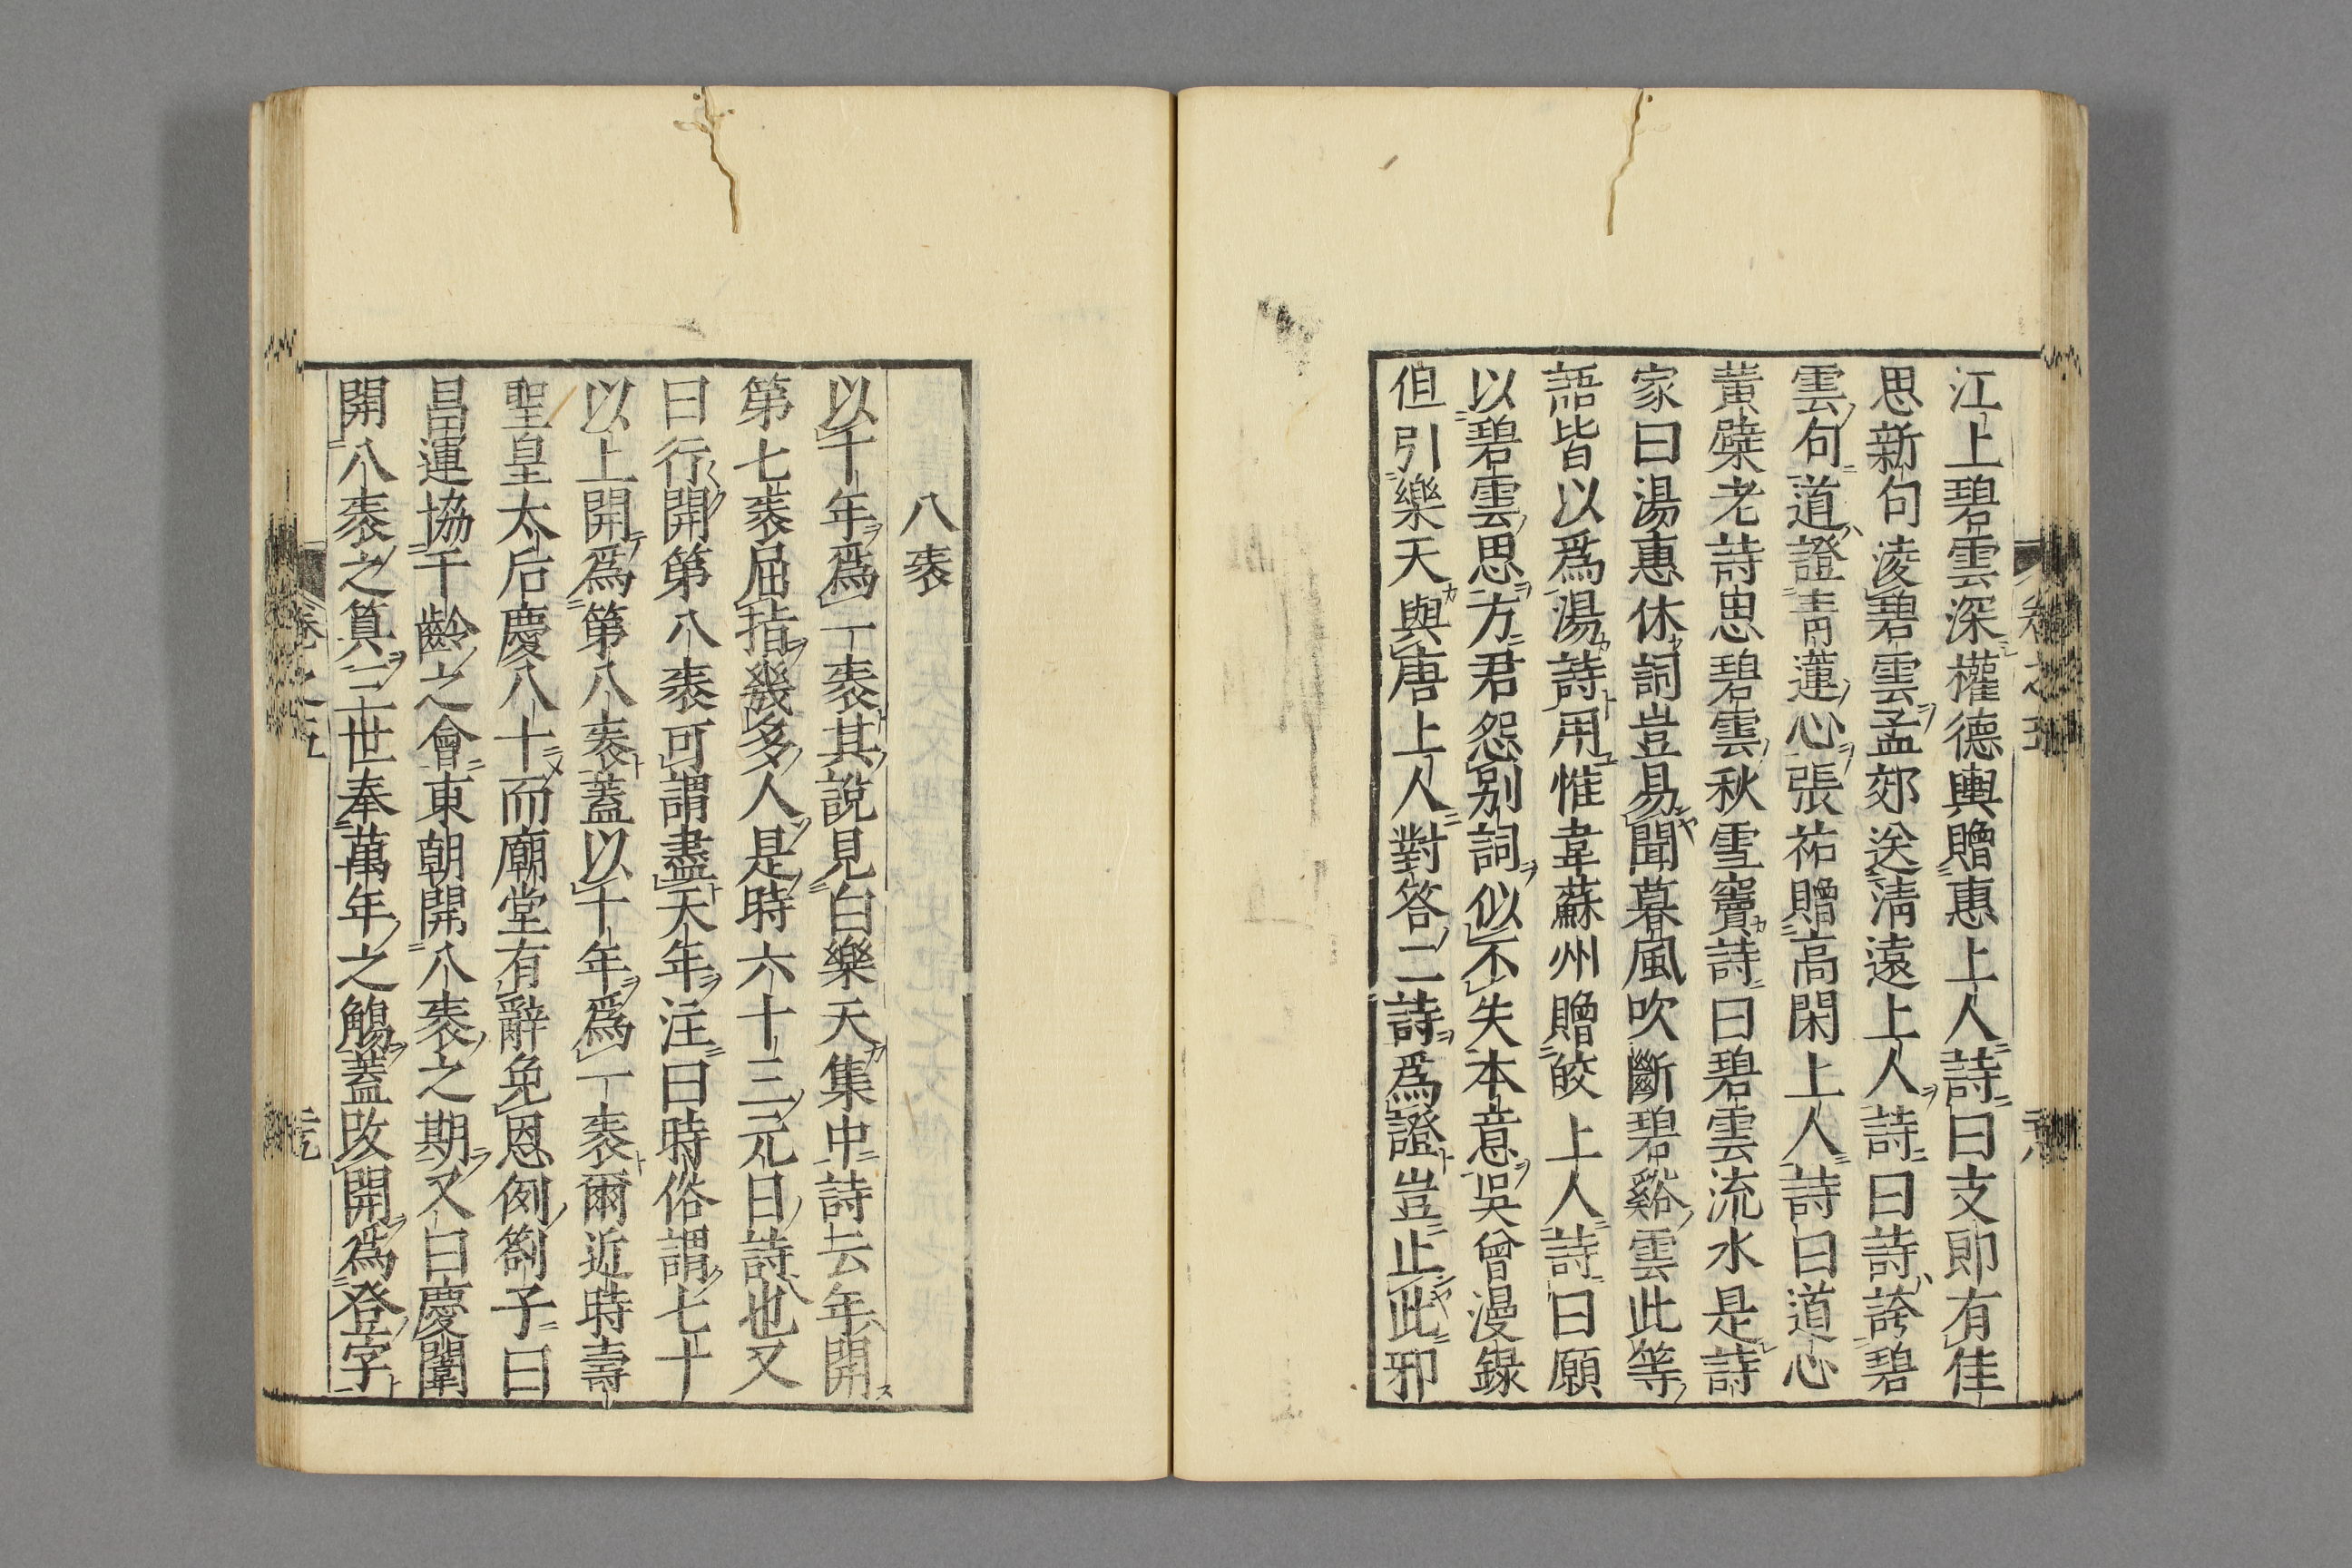 江上碧雲深權德輿贈惠上人詩曰支郎有佳
思新句淩碧雲孟郊送淸遠上人詩曰詩誇碧
雲句道證靑蓮心張祐贈高閑上人詩曰道心
黃蘗老詩思碧雲秋雪竇詩曰碧雲流水是詩
家曰湯惠休詞豈易聞暮風吹斷碧谿雲此等
語皆以爲湯詩用惟韋蘇州贈皎上人詩曰願
以碧雲思方君怨別詞似不失本意吳曾漫錄
但引樂天與唐上人對答二詩爲證豈止此邪
八袠
以十年爲一袠其說見白樂天集中詩云年開
第七袠屈指幾多人是時六十三元日詩也又
曰行開第八袠可謂盡天年注曰時俗謂七十
以上開爲第八袠蓋以十年爲一袠爾近時壽
聖皇太后慶八十而廟堂有辭免恩例劄子曰
昌運協千齡之會東朝開八袠之期又曰慶闈
開八袠之筭三世奉萬年之觴蓋改開爲登字
卷之五